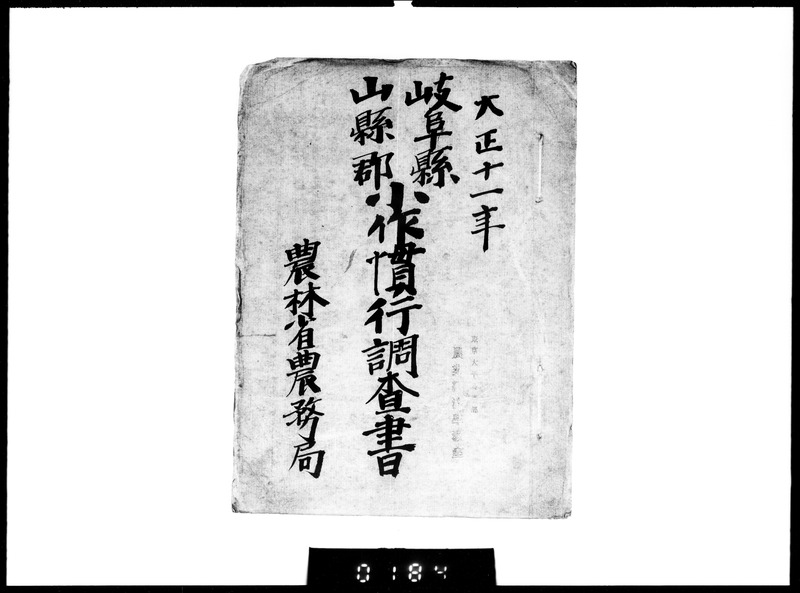 大正十一年
岐阜縣
山縣郡
小作慣行調査書
農林省農務局
0184